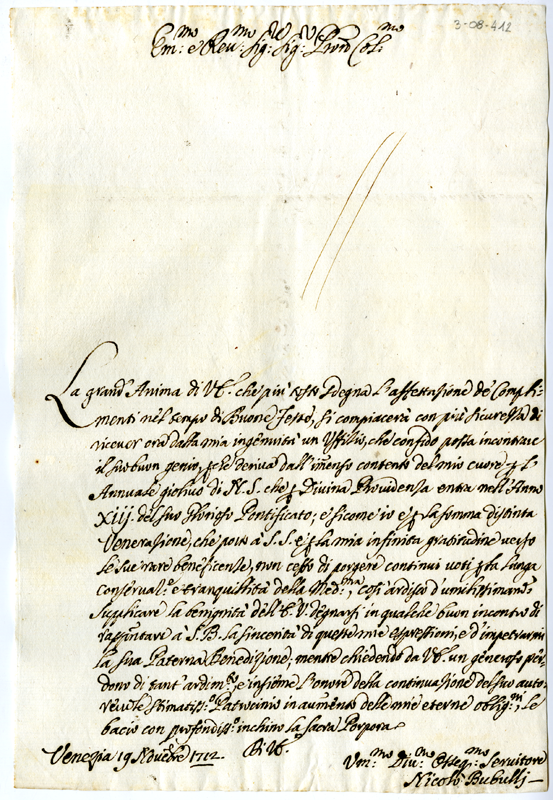 3-08-412
Em:mo e Reu:mo Sig:r Sig:r Pron Col:mo
La grand'Anima di VE. che più tosto sdegna l'affettazione de Compli-
menti nel tempo di Buone Feste, si compiacerà con più sicurezza di
riceuer ora dalla mia ingenuità un Uffitio, che confido possa incontrare
il suo buon genio, pche deriua dall'imenso contento del mio cuore p l'
Annuale gioliuo di N.S. che p Diuina Prouidenza entra nell'Anno
XIIJ. del suo Glorioso Pontificato; e sicome io e p la somma distinta
Venerazione, che porto à S.S. e p la mia infinita gratitudine verso
le sue rare beneficenze, non cesso di porgere continui uoti p la lunga
conseruat:e e tranquillità della Med:ma, così ardisco d'umilissimamte
supplicare la benignità dell'E.V. degnarsi in qualche buon incontro di
rassentare à S.B. la sincerità di queste mie espressioni, e d'impetrarmi
la sua Paterna Benedizione, mentre chiedendo da VE. un generoso per-
dono di tant'ardim:to, e insieme l'onore della continuazione del suo auto-
reuole stimatiss:o Patrocinio in aumento delle mie eterne oblig:ni, le
bacio con profondiss:o inchino la Sacra Porpora
Venezia 19 Nouembre 1712. Di VE.
Um:mo Diu:mo Osseq:mo Seruitore
Nicolò Bubulli